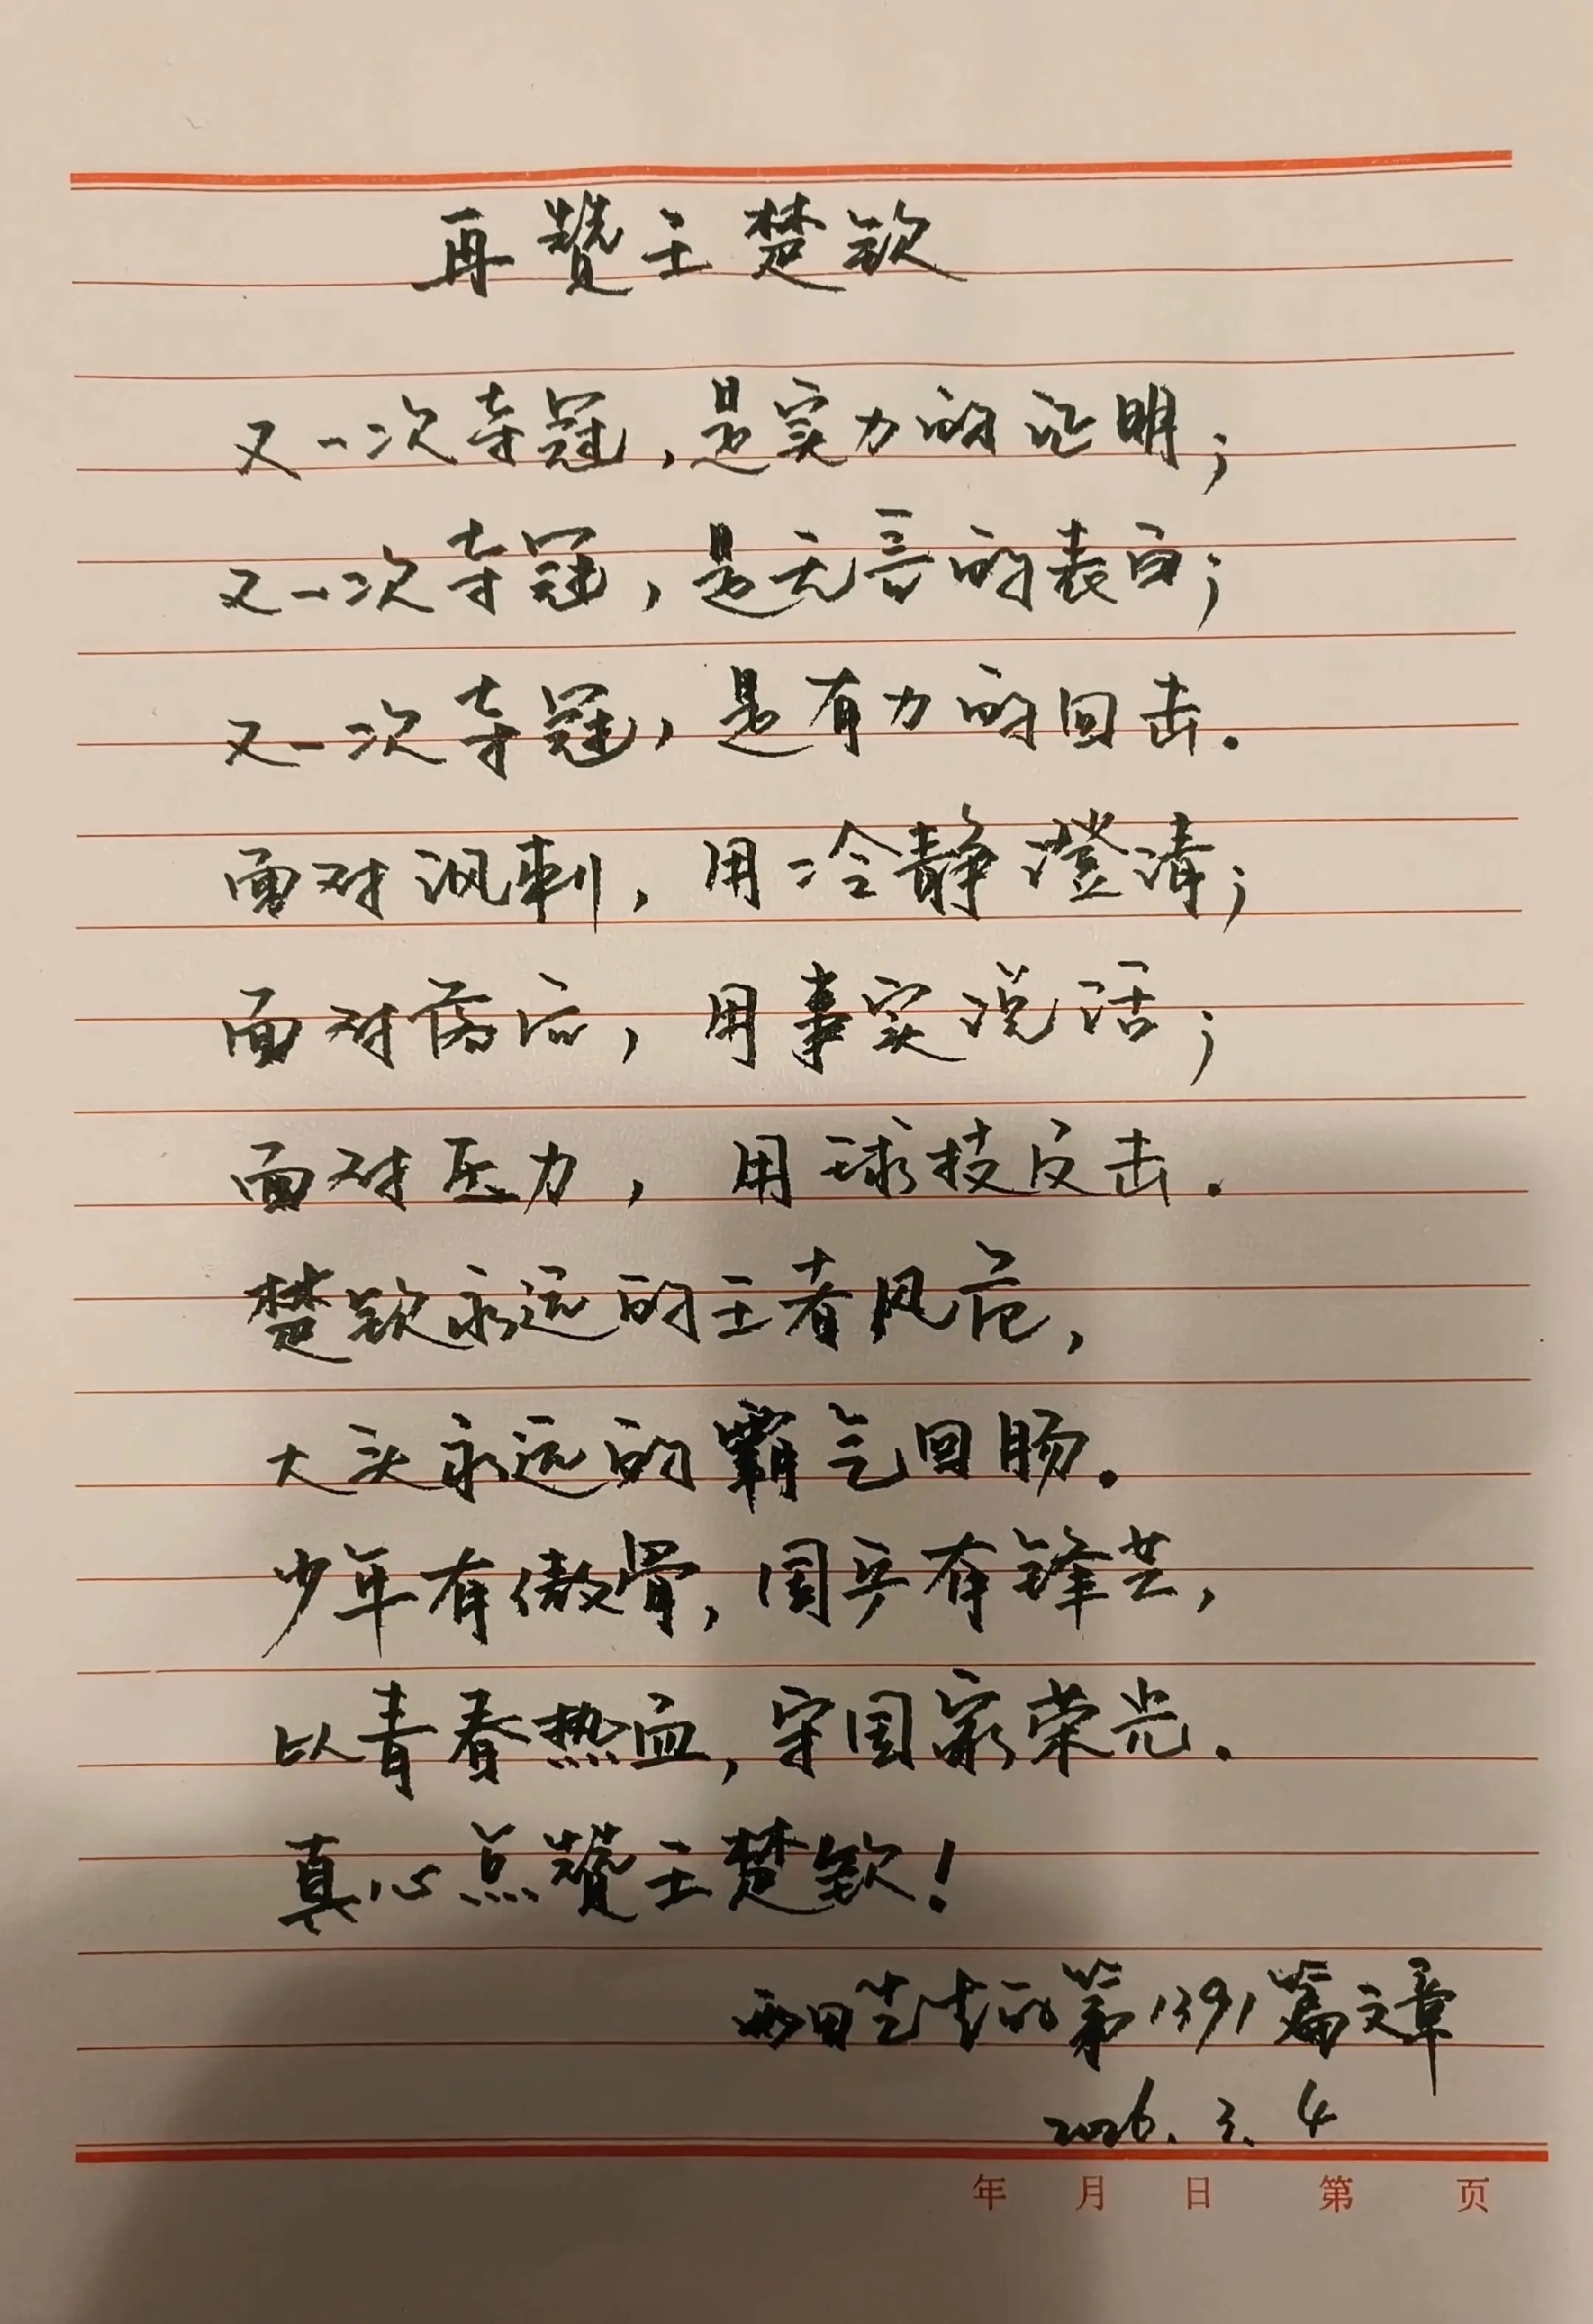 再赞王楚钦
又一次夺冠，是实力的证明；
又一次夺冠，是无言的表白；
又一次夺冠，是有力的回击.
面对讽刺，用冷静澄清；
面对，用事实说话；
面对压力，用球技反击.
楚钦永远的王者风范，
大头永远的霸气回肠.
少年有傲骨，国乒有锋芒，
以青春热血，守国家荣光.
真心点赞王楚钦！
的第1391篇文章
2026.3.4
年 月 日 第 页